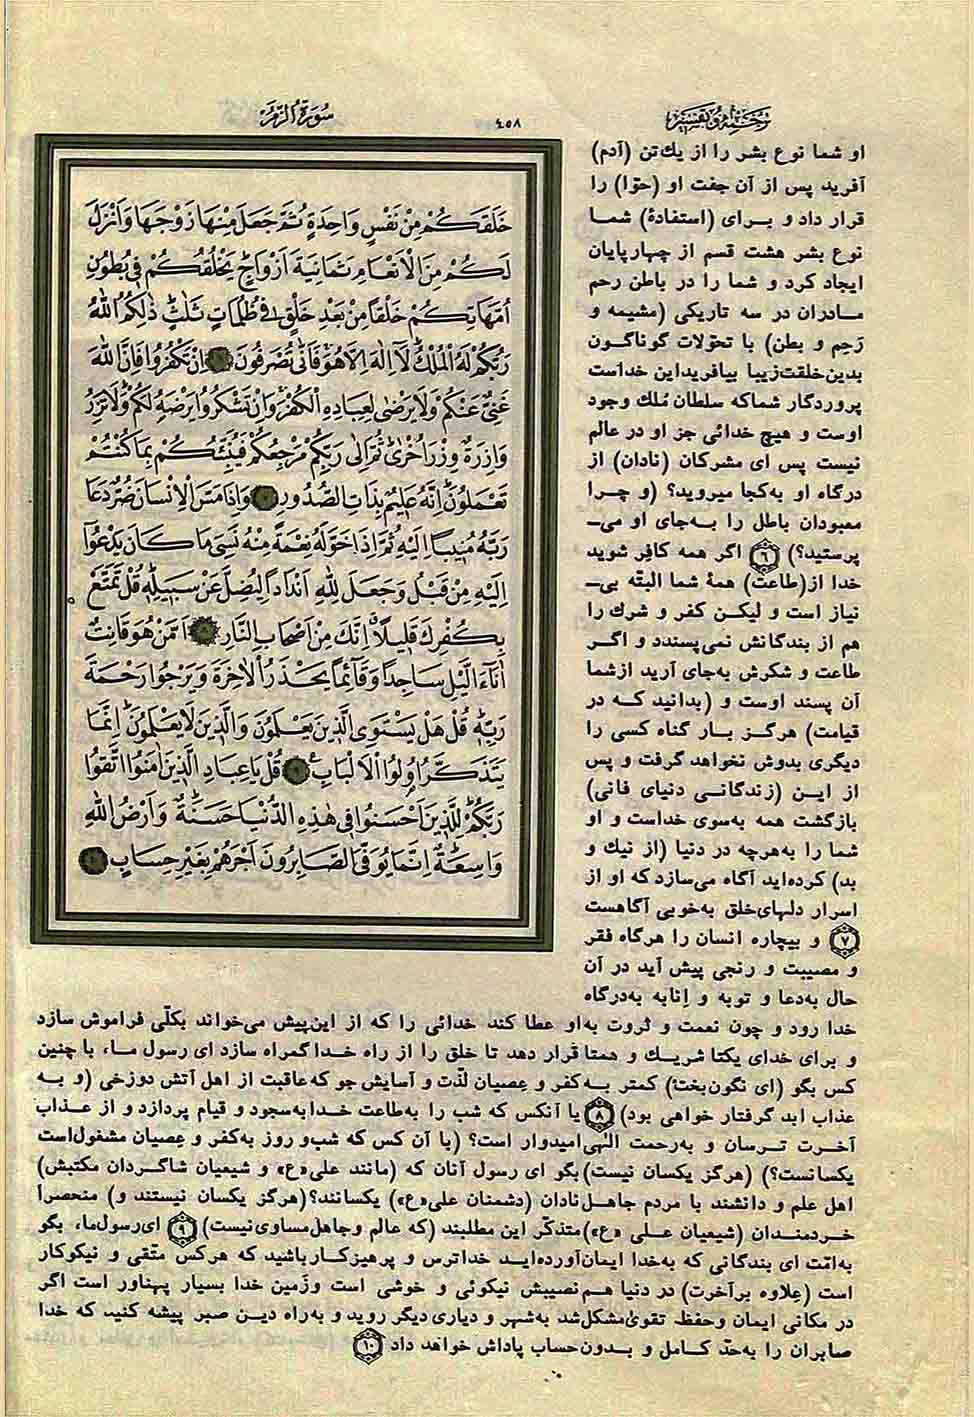 ترجمه و تفسیر
٤٥٨
سورة الزمر
خَلَقَكُمْ مِنْ نَفْسٍ وَاحِدَةٍ ثُمَّ جَعَلَ مِنْهَا زَوْجَهَا وَاَنْزَلَ
لَكُمْ مِنَ الْاَنْعَامِ ثَمَانِيَةَ اَزْوَاجٍ يَخْلُقُكُمْ فِى بُطُونِ
اُمَّهَاتِكُمْ خَلْقًا مِنْ بَعْدِ خَلْقٍ فِى ظُلُمَاتٍ ثَلٰثٍ ذٰلِكُمُ اللّٰهُ
رَبُّكُمْ لَهُ الْمُلْكُ لَآ اِلٰهَ اِلَّا هُوَ فَاَنّٰى تُصْرَفُونَ ٦ اِنْ تَكْفُرُوا فَاِنَّ اللّٰهَ
غَنِىٌّ عَنْكُمْ وَلَا يَرْضٰى لِعِبَادِهِ الْكُفْرَ وَاِنْ تَشْكُرُوا يَرْضَهُ لَكُمْ وَلَا تَزِرُ
وَازِرَةٌ وِزْرَ اُخْرٰى ثُمَّ اِلٰى رَبِّكُمْ مَرْجِعُكُمْ فَيُنَبِّئُكُمْ بِمَا كُنْتُمْ
تَعْمَلُونَ اِنَّهُ عَلِيمٌ بِذَاتِ الصُّدُورِ ٧ وَاِذَا مَسَّ الْاِنْسَانَ ضُرٌّ دَعَا
رَبَّهُ مُنِيبًا اِلَيْهِ ثُمَّ اِذَا خَوَّلَهُ نِعْمَةً مِنْهُ نَسِىَ مَا كَانَ يَدْعُوآ
اِلَيْهِ مِنْ قَبْلُ وَجَعَلَ لِلّٰهِ اَنْدَادًا لِيُضِلَّ عَنْ سَبِيلِهِ قُلْ تَمَتَّعْ
بِكُفْرِكَ قَلِيلًا اِنَّكَ مِنْ اَصْحَابِ النَّارِ ٨ اَمَّنْ هُوَ قَانِتٌ
اٰنَآءَ الَّيْلِ سَاجِدًا وَقَآئِمًا يَحْذَرُ الْاٰخِرَةَ وَيَرْجُوا رَحْمَةَ
رَبِّهِ قُلْ هَلْ يَسْتَوِى الَّذِينَ يَعْلَمُونَ وَالَّذِينَ لَا يَعْلَمُونَ اِنَّمَا
يَتَذَكَّرُ اُولُوا الْاَلْبَابِ ٩ قُلْ يَا عِبَادِ الَّذِينَ اٰمَنُوا اتَّقُوا
رَبَّكُمْ لِلَّذِينَ اَحْسَنُوا فِى هٰذِهِ الدُّنْيَا حَسَنَةٌ وَاَرْضُ اللّٰهِ
وَاسِعَةٌ اِنَّمَا يُوَفَّى الصَّابِرُونَ اَجْرَهُمْ بِغَيْرِ حِسَابٍ ١٠
او شما نوع بشر را از یك تن (آدم)
آفرید پس از آن جفت او (حوّا) را
قرار داد و برای (استفادهٔ) شما
نوع بشر هشت قسم از چهارپایان
ایجاد کرد و شما را در باطن رحم
مادران در سه تاریکی (مشیمه و
رَحِم و بطن) با تحوّلات گوناگون
بدین خلقت زیبا بیافرید این خداست
پروردگار شما که سلطان مُلك وجود
اوست و هیچ خدائی جز او در عالم
نیست پس ای مشرکان (نادان) از
درگاه او به کجا میروید؟ (و چرا
معبودان باطل را به جای او می-
پرستید؟) ٦ اگر همه کافر شوید
خدا از (طاعت) همهٔ شما البتّه بی-
نیاز است و لیکن کفر و شرك را
هم از بندگانش نمی‌پسندد و اگر
طاعت و شکرش به جای آرید از شما
آن پسند اوست و (بدانید که در
قیامت) هرگز بار گناه کسی را
دیگری بدوش نخواهد گرفت و پس
از این (زندگانی دنیای فانی)
بازگشت همه به سوی خداست و او
شما را به هرچه در دنیا (از نیك و
بد) کرده‌اید آگاه می‌سازد که او از
اسرار دلهای خلق به خوبی آگاهست
٧ و بیچاره انسان را هرگاه فقر
و مصیبت و رنجی پیش آید در آن
حال به دعا و توبه و اِنابه به درگاه
خدا رود و چون نعمت و ثروت به او عطا کند خدائی را که از این پیش می‌خواند بکلّی فراموش سازد
و برای خدای یکتا شریك و همتا قرار دهد تا خلق را از راه خدا گمراه سازد ای رسول ما، با چنین
کس بگو (ای نگون‌بخت) کمتر به کفر و عِصیان لذّت و آسایش جو که عاقبت از اهل آتش دوزخی (و به
عذاب ابد گرفتار خواهی بود) ٨ یا آنکس که شب را به طاعت خدا به سجود و قیام پردازد و از عذاب
آخرت ترسان و به رحمت الٰهی امیدوار است؟ (با آن کس که شب و روز به کفر و عِصیان مشغول است
یکسانست؟) (هرگز یکسان نیست) بگو ای رسول آنان که (مانند علی «ع» و شیعیان شاگردان مکتبش)
اهل علم و دانشند با مردم جاهل نادان (دشمنان علی «ع») یکسانند؟ (هرگز یکسان نیستند و) منحصراً
خردمندان (شیعیان علی «ع») متذکّر این مطلبند (که عالم و جاهل مساوی نیست) ٩ ای رسول ما، بگو
به امّت ای بندگانی که به خدا ایمان آورده‌اید خداترس و پرهیزکار باشید که هرکس متّقی و نیکوکار
است (عِلاوه بر آخرت) در دنیا هم نصیبش نیکوئی و خوشی است و زَمین خدا بسیار پهناور است اگر
در مکانی ایمان و حفظ تقویٰ مشکل شد به شهر و دیاری دیگر روید و به راه دین صبر پیشه کنید که خدا
صابران را به حدّ کامل و بدون حساب پاداش خواهد داد ١٠